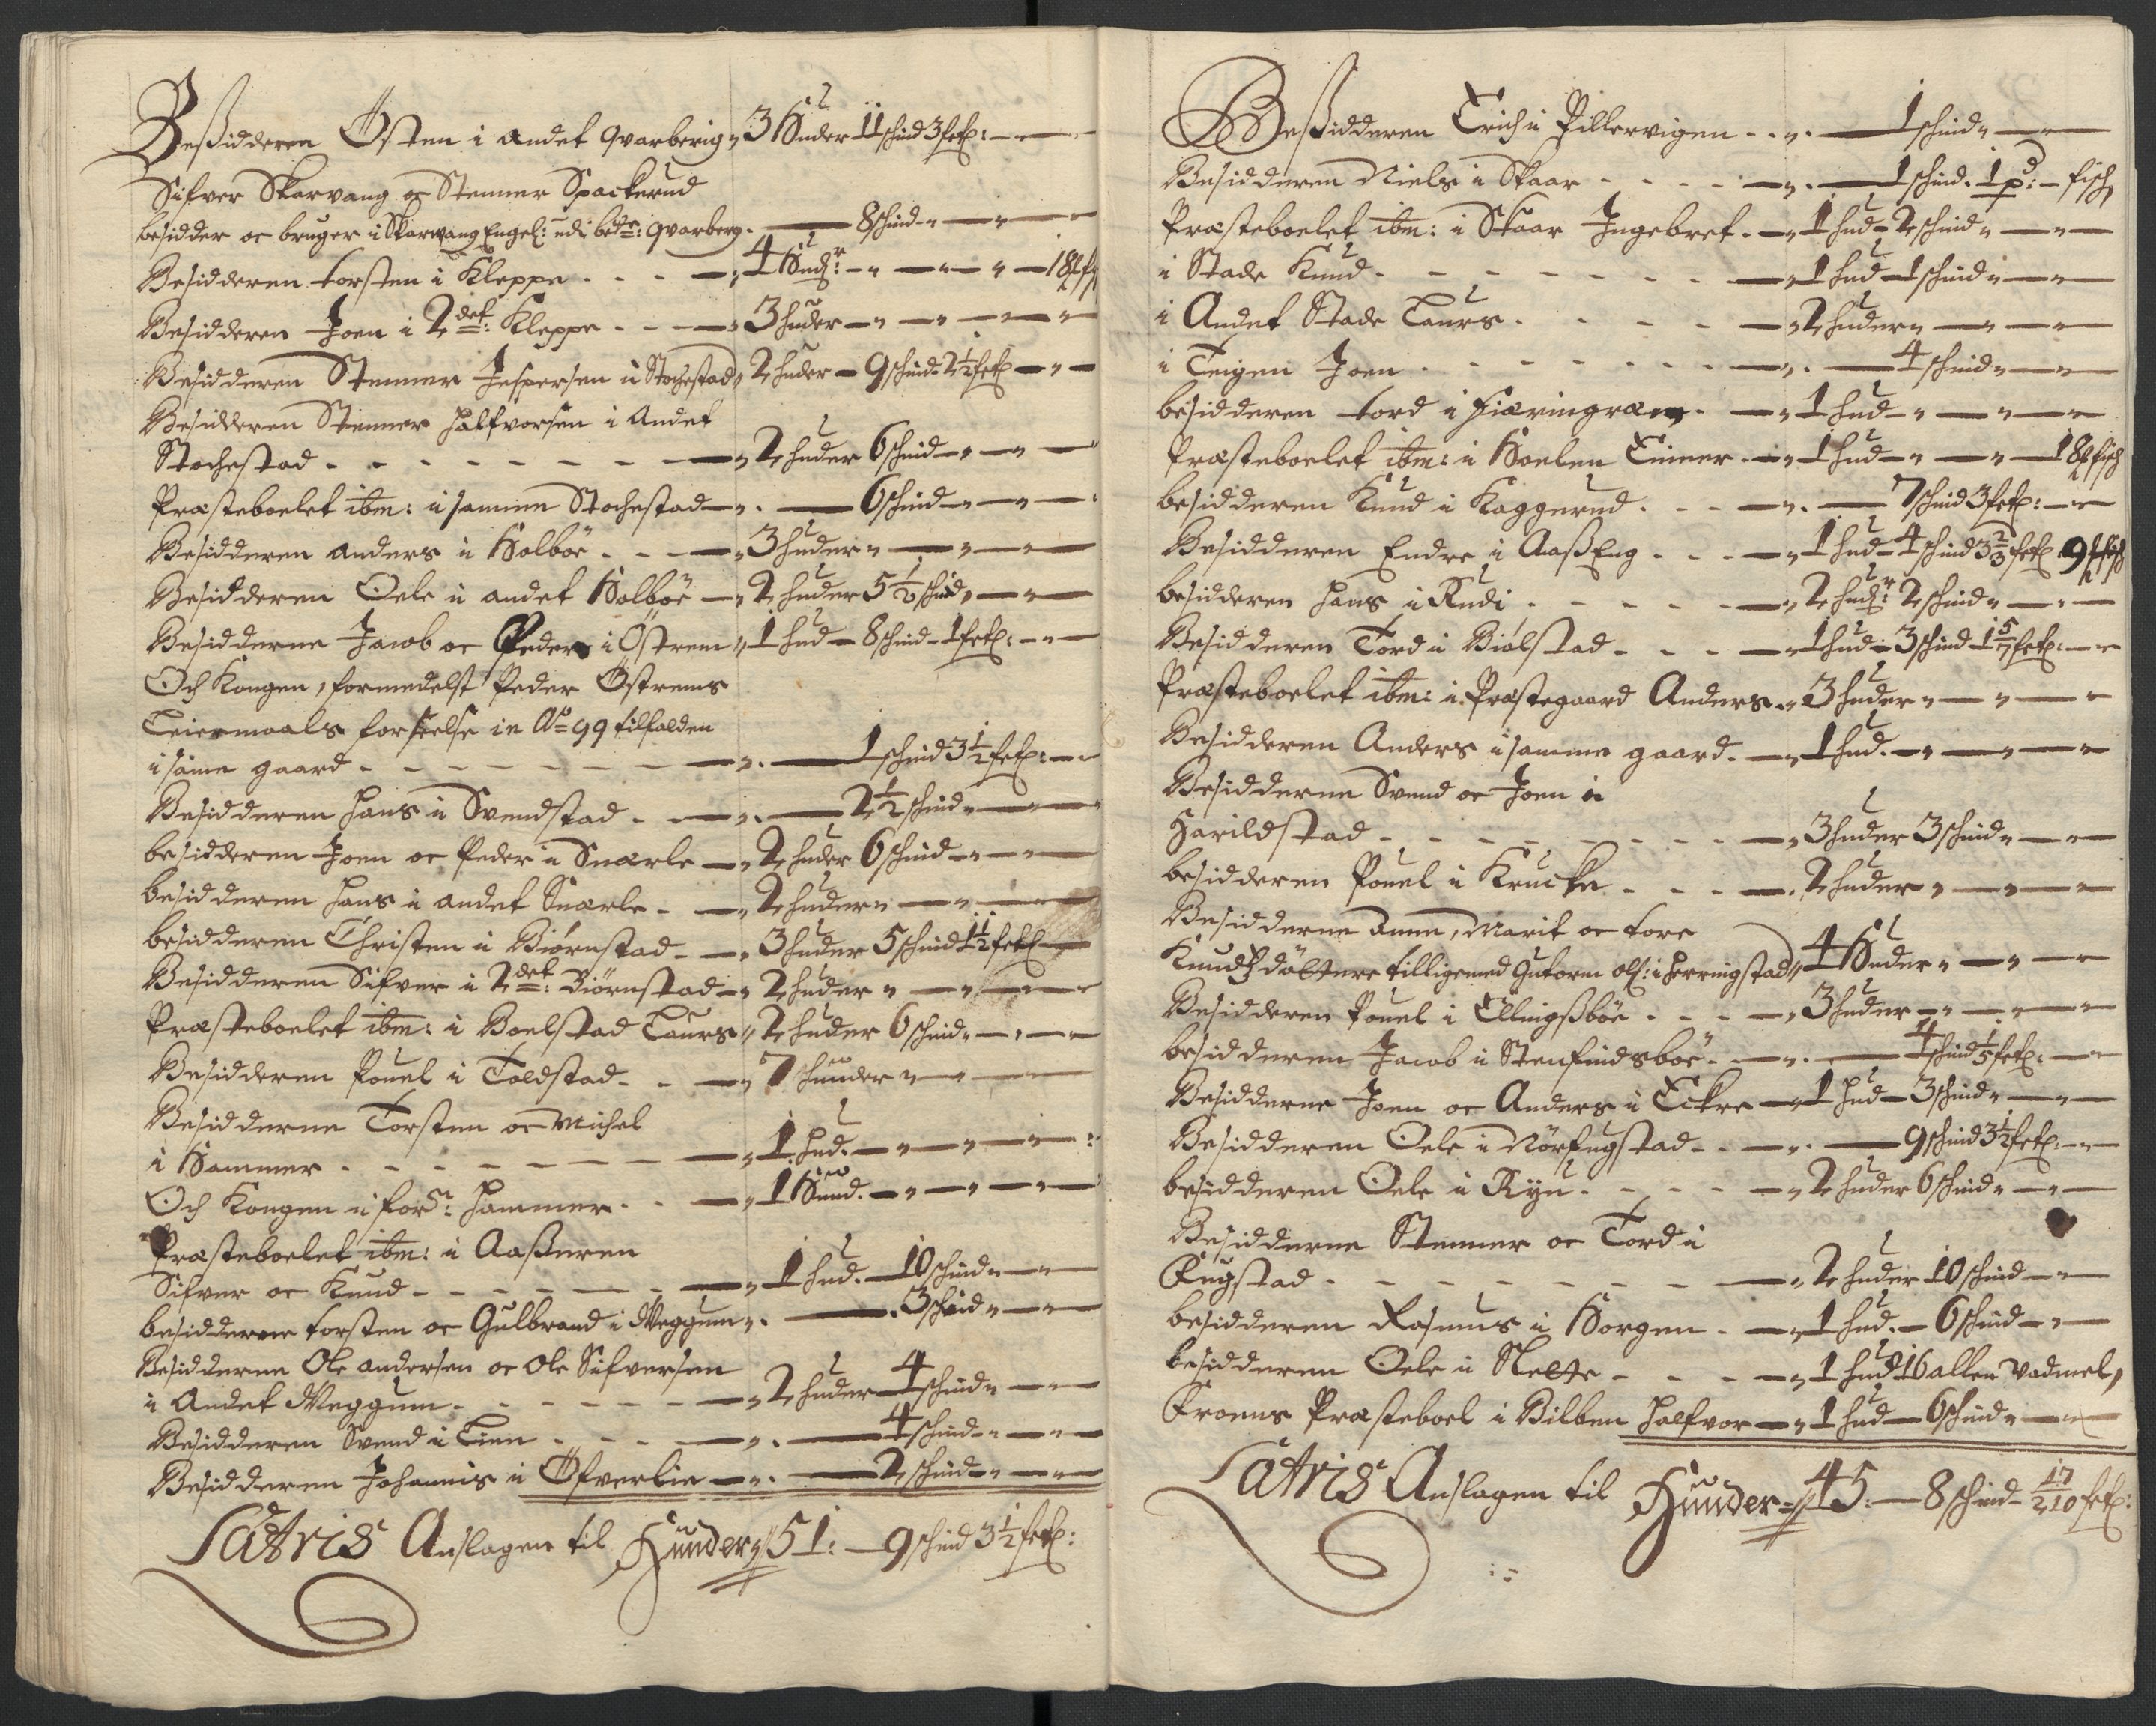 Beßidderen Østen i andet Qvarberig 3 Huder 11 schind 3 fetz:
Sifver Skarvang oc Stenner Spackerud
besidder oc bruger i Skarwang Engel: udi bete: Qvarberg 8 schind
Besidderen torsten i Kleppe 4 Hudr: 18 lf
Besidderen Joen i 2det: Kleppe 3 huder
Besidderen Stenner Jespersen i Stochestad 2 huder 9 schind 2½ fetz
Besidderen Stenner halfvorsen i Andet
Stochestad 2 huder 6 schind
Præsteboelet ibm: i samme Stochestad 6 schind
Besidderen anders i Holböe 3 huder
Besidderen Oele i andet Holböe 2 huder 5½ schind
Besidderne Jacob oc Peder i Östrem 1 hud 8 schind 1 fetz:
Och Kongen, formedelst Peder Östrems
Leiermaals forseelse in Ao 99 tilfalden
i sãme gaard 1 schind 3½ fetz:
Besidderen hans i Svendstad 2½ schind
besidderen Joen oc Peder i Snærle 2 huder 6 schind
besidderen hans i andet Snærle 2 huder
besidderen Christen i Biørnstad 3 huder 5 schind 1½ fetz
Besidderen Sifver i 2det: Biörnstad 2 huder
Præsteboelet ibm: i Boelstad Laurs 2 huder 6 schind
Besidderen Pouel i Toldstad 7 hunder
Besidderne Torsten oc Michel
i Hammer 1 hud.
Och Kongen i forn: hammer 1 Hund.
Præsteboelet ibm: i Aaßeren
Sifver oc Knud 1 hud. 10 schind
besidderne torsten oc Gulbrand i Veggum 3 schind
Besidderne Ole andersen oc Ole Sifversen
i Andet Veggum 2 huder 4 schind
Besidderen Svend i Lien 4 schind
Besidderen Johannis i Öfverlie 2 schind
Latris Anslagen til Hunder 51: 9 schind 3½ fetz:
Beßidderen Erich i Pillervigen 1 schind
Besidderen Niels i Skaar 1 schind. 1 pd: fisch
Præsteboelet ibm: i Skaar Ingebret 1 hud 2 schind
i Stade Knud 1 hud 1 schind
i Andet Stade Laurs 2 huder
i Teigen Joen 4 schind
besidderen tord i Fiæringræn 1 hud
Præsteboelet ibm: i Hoelen Einer 1 hud 18 lfisch
besidderen Knud i Kaggerud 7 schind 3 fetz:
Besidderen Endre i Aaß Eng 1 hud 4 schind 3⅔ fetz 9 fisch
besidderen hans i Rudi 2 hudr: 2 schind
Besidderen Tord i Biølstad 1 hud 3 schind 1 5/7 fetz:
Præsteboelet ibm: i Præstegaard Anders 3 huder
Besidderen Anders i samme gaard 1 hud.
Besidderne Svend oc Joen i
Harildstad 3 huder 3 schind
besidderen Pouel i Krucke 2 huder
Besidderne Anne, Marit oc tore
Knudsdöttere tilligemed Gutorm Ols: i herringstad 4 Huder
Besidderen Pouel i Ellingßböe 3 huder
besidderen Jacob i Stenfindsböe 4 schind ⅕ fetz:
Besidderne Joen oc Anders i Eckre 1 hud 3 schind
Besidderen Oele i Nörfugstad 9 schind 3½ fetz:
besidderen Oele i Ryn 2 huder 6 schind
Besidderne Stenner oc Tord i
Fugstad 2 huder 10 schind
besidderen Rasmus i Horgen 1 hud. 6 schind
besidderen Oele i Slette 1 hud 16 allen vadmel,
Froens Præsteboel i Bilben halfvor 1 hud 6 schind
Latris Anslagen til Hunder 45: 8 schind 17/210 fetz: